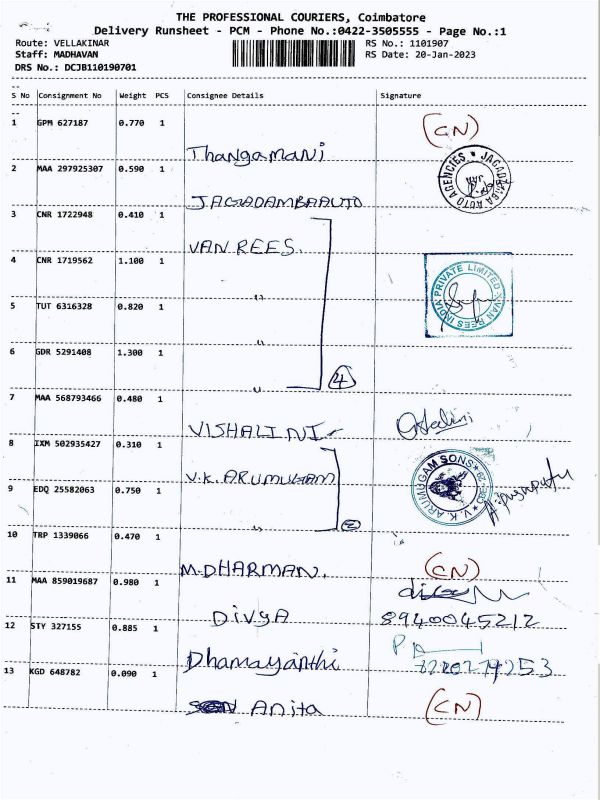 THE PROFESSIONAL COURIERS, Coimbatore
Delivery Runsheet - PCM - Phone No.:0422-3505555 - Page No.:1
Route: VELLAKINAR RS No.: 1101907
Staff: MADHAVAN RS Date: 20-Jan-2023
DRS No.: DCJB110190701
S No Consignment No Weight PCS Consignee Details Signature
1 GPM 627187 0.770 1 (CN)
Thangamani
2 MAA 297925307 0.590 1 JAGADAMBA AUTO AGENCIES
JAGADAMBA AUTO
3 CNR 1722948 0.410 1
VAN REES.
4 CNR 1719562 1.100 1 VAN REES INDIA PRIVATE LIMITED
"
5 TUT 6316328 0.820 1
"
6 GDR 5291408 1.300 1
" 4
7 MAA 568793466 0.480 1
VISHALINI Shalini
8 IXM 502935427 0.310 1 V.K. ARUMUGAM SONS
V.K. ARUMUGAM
9 EDQ 25582063 0.750 1
" 2
10 TRP 1339066 0.470 1
M.DHARMAN. (CN)
11 MAA 859019687 0.980 1
Divya 8940045212
12 STY 327155 0.885 1
Dhamayanthi
13 KGD 648782 0.090 1
Anita (CN)